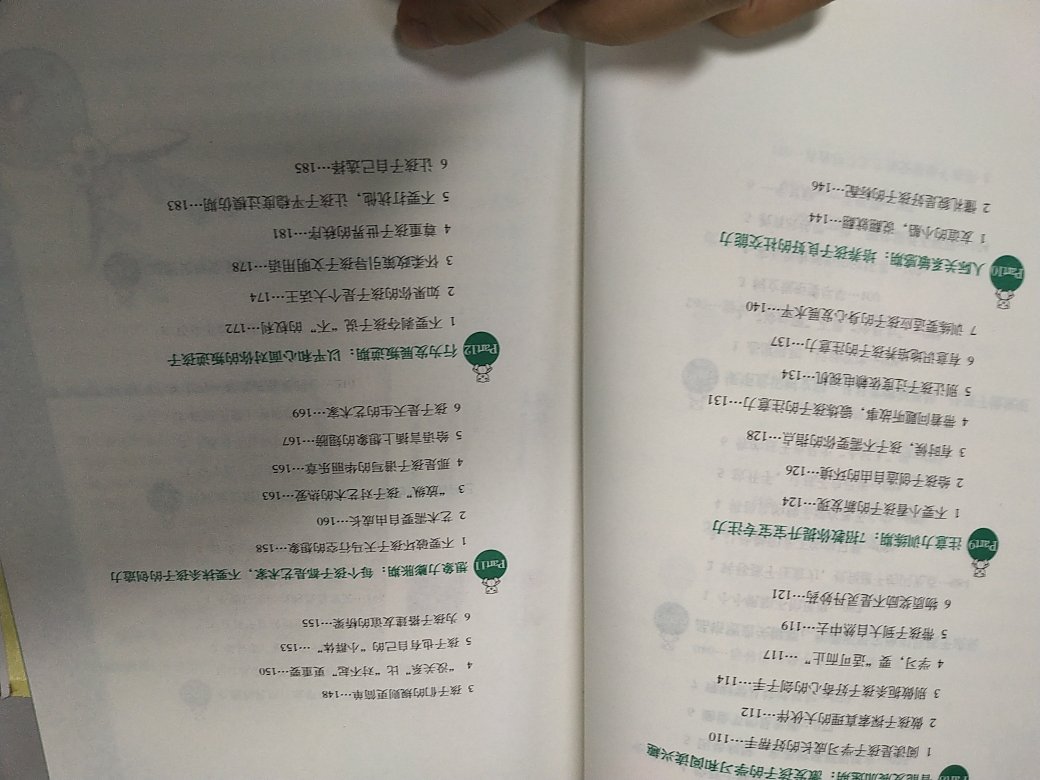 Part8
智能发展加速期：激发孩子的学习和阅读兴趣
1 阅读是孩子学习成长的好帮手…110
2 做孩子探索真理的大伙伴…112
3 别做扼杀孩子好奇心的刽子手…114
4 学习，要“适可而止”…117
5 带孩子到大自然中去…119
6 物质奖励不是灵丹妙药…121
Part9
注意力训练期：7招教你提升宝宝专注力
1 不要小看孩子的新发现…124
2 给孩子创造自由的环境…126
3 有时候，孩子不需要你的指点…128
4 带着问题听故事，锻炼孩子的注意力…131
5 别让孩子过度依赖电视机…134
6 有意识地培养孩子的注意力…137
7 训练要适应孩子的身心发展水平…140
Part10
人际关系敏感期：培养孩子良好的社交能力
1 友谊的小船，说翻就翻…144
2 懂礼貌是好孩子的标配…146
3 孩子们的规则更简单…148
4 “没关系”比“对不起”更重要…150
5 孩子也有自己的“小群体”…153
6 为孩子搭建友谊的桥梁…155
Part11
想象力膨胀期：每个孩子都是艺术家，不要抹杀孩子的创造力
1 不要破坏孩子天马行空的想象…158
2 艺术需要自由成长…160
3 “放纵”孩子对艺术的热爱…163
4 那是孩子谱写的华丽乐章…165
5 给语言插上想象的翅膀…167
6 孩子是天生的艺术家…169
Part12
行为发展叛逆期：以平和心面对你的叛逆孩子
1 不要剥夺孩子说“不”的权利…172
2 如果你的孩子是个大话王…174
3 怀柔政策引导孩子文明用语…178
4 尊重孩子世界的秩序…181
5 不要打扰他，让孩子平稳度过模仿期…183
6 让孩子自己选择…185